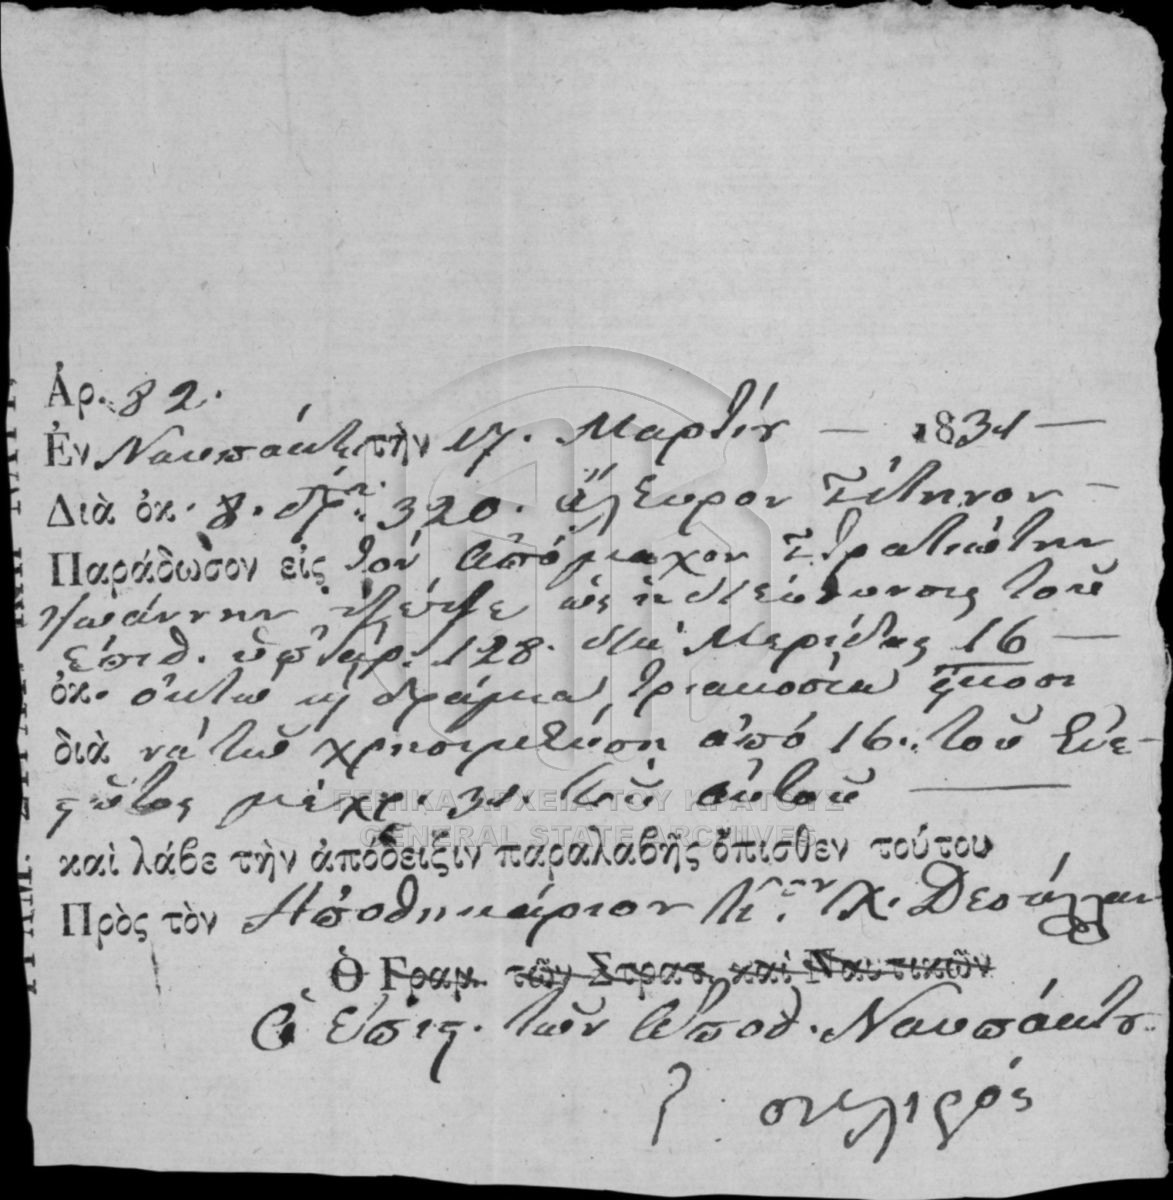 Ἀρ. 82.
Ἐν Ναυπάκτῳ τὴν 17. Μαρτίου — 1831 —
Διὰ ὀκ. 8. δρ. 320. ἄλευρον σίτηνον —
Παράδωσον εἰς τὸν ἀπόμαχον στρατιώτην
Ἰωάννην ὡς ἡ διεύθυνσις τοῦ
ἐπιθ. ὑπ' ἀρ. 128. διὰ μερίδας 16 —
ὀκ. ὀκτὼ καὶ δράμια τριακόσια εἴκοσι
διὰ νὰ τοῦ χρησιμεύσῃ ἀπὸ 16. τοῦ ἐνε-
στῶτος μέχρι 31. τοῦ αὐτοῦ —
ΓΕΝΙΚΑ ΑΡΧΕΙΑ ΤΟΥ ΚΡΑΤΟΥΣ
GENERAL STATE ARCHIVES
καὶ λάβε τὴν ἀπόδειξιν παραλαβῆς ὄπισθεν τούτου
Πρὸς τὸν Ἀποθηκάριον Κ. Χ.
Ὁ Γραμ. τῶν Στρατ. καὶ Ναυτικῶν
Ὁ ἐπιστ. τῶν ἀποθ. Ναυπάκτου